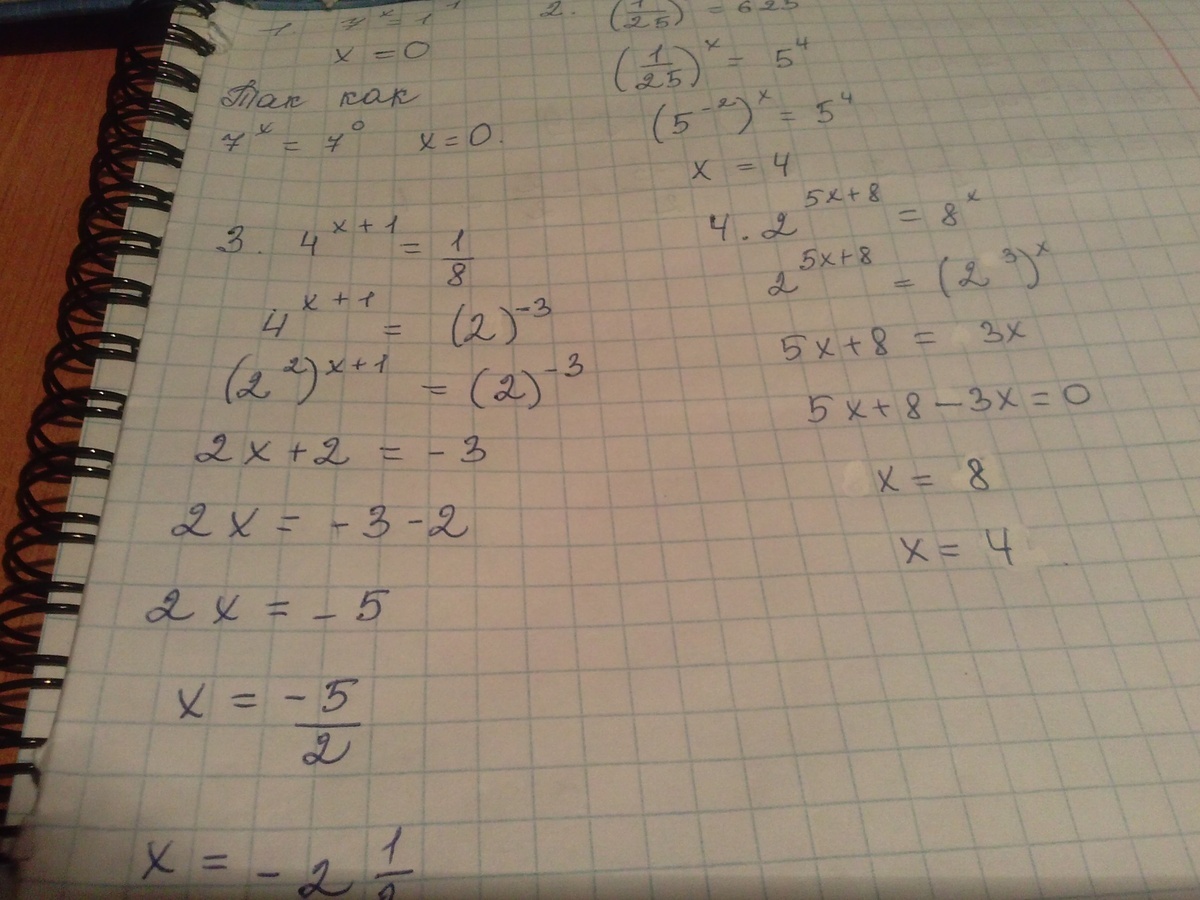 1. 7^x = 1
x = 0
Так как
7^x = 7^0 x = 0.
2. (1/25) = 625
(1/25)^x = 5^4
(5^-2)^x = 5^4
x = 4
3. 4^x+1 = 1/8
4^x+1 = (2)^-3
(2^2)^x+1 = (2)^-3
2x + 2 = - 3
2x = - 3 - 2
2x = - 5
x = - 5/2
x = - 2 1/2
4. 2^5x+8 = 8^x
2^5x+8 = (2^3)^x
5x + 8 = 3x
5x + 8 - 3x = 0
x = 8
x = 4